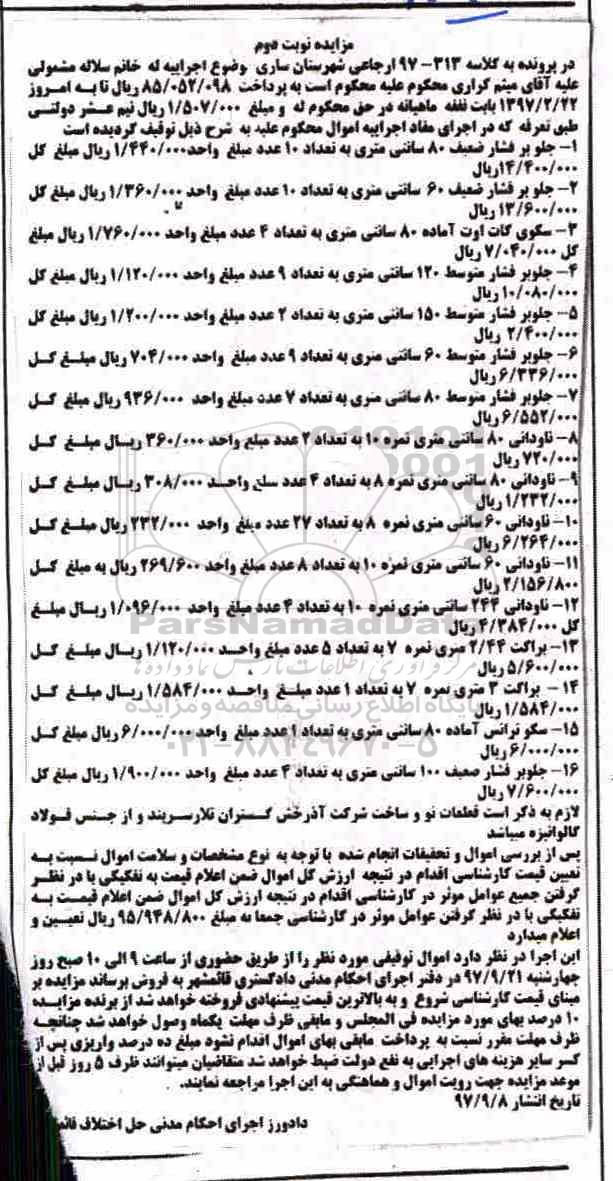 مزایده نوبت دوم
در پرونده به کلاسه ۳۱۳-۹۷ ارجاعی شهرستان ساری موضوع اجراییه له خانم سلاله مشمولی
علیه آقای میثم کراری محکوم علیه محکوم است به پرداخت ۸۵/۰۵۲/۰۹۸ ریال تا به امروز
۱۳۹۷/۲/۲۲ بابت نفقه ماهیانه در حق محکوم له و مبلغ ۱/۵۰۷/۰۰۰ ریال نیم عشر دولتی
طبق تعرفه که در اجرای مفاد اجراییه اموال محکوم علیه به شرح ذیل توقیف گردیده است
۱- جلو بر فشار ضعیف ۸۰ سانتی متری به تعداد ۱۰ عدد مبلغ واحد ۱/۴۴۰/۰۰۰ ریال مبلغ کل
۱۴/۴۰۰/۰۰۰ریال
۲- جلو بر فشار ضعیف ۶۰ سانتی متری به تعداد ۱۰ عدد مبلغ واحد ۱/۳۶۰/۰۰۰ ریال مبلغ کل
۱۳/۶۰۰/۰۰۰ ریال
۳- سکوی کات اوت آماده ۸۰ سانتی متری به تعداد ۴ عدد مبلغ واحد ۱/۷۶۰/۰۰۰ ریال مبلغ
کل ۷/۰۴۰/۰۰۰ ریال
۴- جلوبر فشار متوسط ۱۲۰ سانتی متری به تعداد ۹ عدد مبلغ واحد ۱/۱۲۰/۰۰۰ ریال مبلغ کل
۱۰/۰۸۰/۰۰۰ ریال
۵- جلوبر فشار متوسط ۱۵۰ سانتی متری به تعداد ۲ عدد مبلغ واحد ۱/۲۰۰/۰۰۰ ریال مبلغ کل
۲/۴۰۰/۰۰۰ ریال
۶- جلوبر فشار متوسط ۶۰ سانتی متری به تعداد ۹ عدد مبلغ واحد ۷۰۴/۰۰۰ ریال مبلغ کل
۶/۳۳۶/۰۰۰ ریال
۷- جلوبر فشار متوسط ۸۰ سانتی متری به تعداد ۷ عدد مبلغ واحد ۹۳۶/۰۰۰ ریال مبلغ کل
۶/۵۵۲/۰۰۰ ریال
۸- ناودانی ۸۰ سانتی متری نمره ۱۰ به تعداد ۲ عدد مبلغ واحد ۳۶۰/۰۰۰ ریال مبلغ کل
۷۲۰/۰۰۰ ریال
۹- ناودانی ۸۰ سانتی متری نمره ۸ به تعداد ۴ عدد مبلغ واحد ۳۰۸/۰۰۰ ریال مبلغ کل
۱/۲۳۲/۰۰۰ ریال
۱۰- ناودانی ۶۰ سانتی متری نمره ۸ به تعداد ۲۷ عدد مبلغ واحد ۲۳۲/۰۰۰ ریال مبلغ کل
۶/۲۶۴/۰۰۰ ریال
۱۱- ناودانی ۶۰ سانتی متری نمره ۱۰ به تعداد ۸ عدد مبلغ واحد ۲۶۹/۶۰۰ ریال به مبلغ کل
۲/۱۵۶/۸۰۰ ریال
۱۲- ناودانی ۲۴۴ سانتی متری نمره ۱۰ به تعداد ۴ عدد مبلغ واحد ۱/۰۹۶/۰۰۰ ریال مبلغ
کل ۴/۳۸۴/۰۰۰ ریال
ParsNamadData
۱۳- براکت ۲/۴۴ متری نمره ۷ به تعداد ۵ عدد مبلغ واحد ۱/۱۲۰/۰۰۰ ریال مبلغ کل
۵/۶۰۰/۰۰۰ ریال
مرکز فرآوری اطلاعات پارس نماد داده ها
۱۴- براکت ۳ متری نمره ۷ به تعداد ۱ عدد مبلغ واحد ۱/۵۸۴/۰۰۰ ریال مبلغ کل
۱/۵۸۴/۰۰۰ ریال
پایگاه اطلاع رسانی مناقصه و مزایده
۱۵- سکو ترانس آماده ۸۰ سانتی متری به تعداد ۱ عدد مبلغ واحد ۶/۰۰۰/۰۰۰ ریال مبلغ کل
۶/۰۰۰/۰۰۰ ریال
۰۲۱-۸۸۳۴۹۶۷۰-۵
۱۶- جلوبر فشار ضعیف ۱۰۰ سانتی متری به تعداد ۴ عدد مبلغ واحد ۱/۹۰۰/۰۰۰ ریال مبلغ کل
۷/۶۰۰/۰۰۰ ریال
لازم به ذکر است قطعات نو و ساخت شرکت آذرخش گستران تلارسربند و از جنس فولاد
گالوانیزه میباشد
پس از بررسی اموال و تحقیقات انجام شده با توجه به نوع مشخصات و سلامت اموال نسبت به
تعیین قیمت کارشناسی اقدام در نتیجه ارزش کل اموال ضمن اعلام قیمت به تفکیکی با در نظر
گرفتن جمیع عوامل موثر در کارشناسی اقدام در نتیجه ارزش کل اموال ضمن اعلام قیمت به
تفکیکی با در نظر گرفتن عوامل موثر در کارشناسی جمعا به مبلغ ۹۵/۹۴۸/۸۰۰ ریال تعیین و
اعلام میدارد
این اجرا در نظر دارد اموال توقیفی مورد نظر را از طریق حضوری از ساعت ۹ الی ۱۰ صبح روز
چهارشنبه ۹۷/۹/۲۱ در دفتر اجرای احکام مدنی دادگستری قائمشهر به فروش برساند مزایده بر
مبنای قیمت کارشناسی شروع و به بالاترین قیمت پیشنهادی فروخته خواهد شد از برنده مزایده
۱۰ درصد بهای مورد مزایده فی المجلس و مابقی ظرف مهلت یکماه وصول خواهد شد چنانچه
ظرف مهلت مقرر نسبت به پرداخت مابقی بهای اموال اقدام نشود مبلغ ده درصد واریزی پس از
کسر سایر هزینه های اجرایی به نفع دولت ضبط خواهد شد متقاضیان میتوانند ظرف ۵ روز قبل از
موعد مزایده جهت رویت اموال و هماهنگی به این اجرا مراجعه نمایند.
تاریخ انتشار ۹۷/۹/۸
دادورز اجرای احکام مدنی حل اختلاف